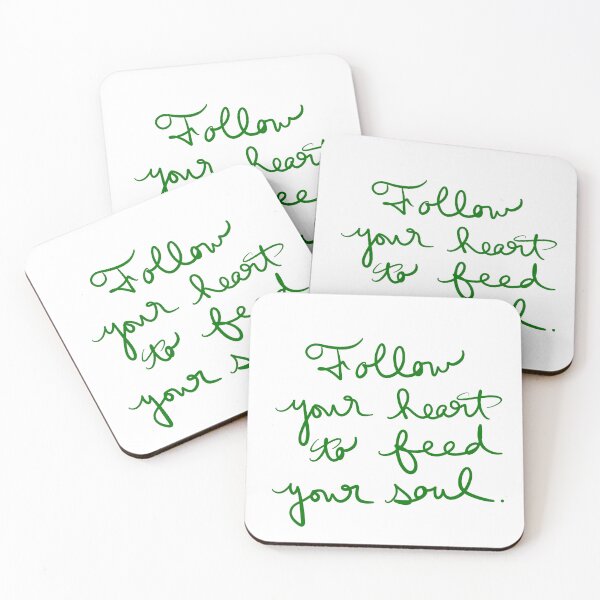 Follow
your heart
Follow
your heart
to feed
Follow
your heart
to feed
your
Follow
your heart
to feed
your soul.